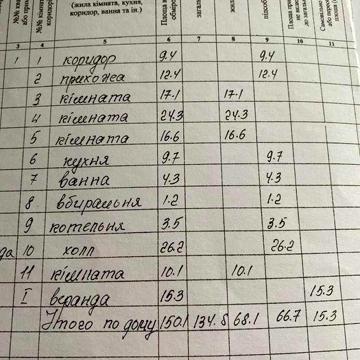 (жила кімната, кухня,
коридор, ванна та ін.)
3 4 5 6 7 8 9 10 11
1 1 коридор 9.4 9.4
2 прихожа 12.4 12.4
3 кімната 17.1 17.1
4 кімната 24.3 24.3
5 кімната 16.6 16.6
6 кухня 9.7 9.7
7 ванна 4.3 4.3
8 вбиральня 1.2 1.2
9 котельня 3.5 3.5
10 холл 26.2 26.2
11 кімната 10.1 10.1
I веранда 15.3 15.3
Итого по дому 150.1 134.8 68.1 66.7 15.3